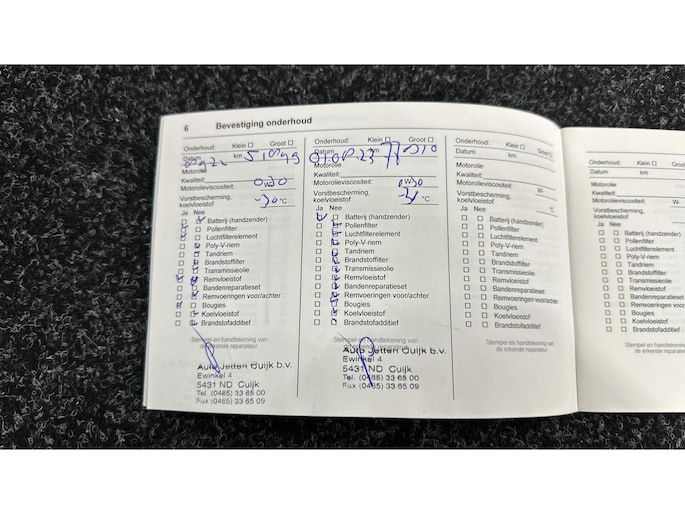 6 Bevestiging onderhoud
Onderhoud: Klein ☐ Groot ☐
Datum km 51099
Motorolie
Kwaliteit:
Motorolieviscositeit: 0W30
Vorstbescherming,
koelvloeistof -30 °C
Ja Nee
Batterij (handzender)
Pollenfilter
Luchtfilterelement
Poly-V-riem
Tandriem
Brandstoffilter
Transmissieolie
Remvloeistof
Bandenreparatieset
Remvoeringen voor/achter
Bougies
Koelvloeistof
Brandstofadditief
Stempel en handtekening van
de erkende reparateur
Auto Jetten Cuijk b.v.
Ewinkel 4
5431 ND Cuijk
Tel. (0485) 33 65 00
Fax (0485) 33 65 09
Onderhoud: Klein ☐ Groot ☐
Datum
Motorolie
Kwaliteit:
Motorolieviscositeit: 0W30
Vorstbescherming,
koelvloeistof °C
Ja Nee
Batterij (handzender)
Pollenfilter
Luchtfilterelement
Poly-V-riem
Tandriem
Brandstoffilter
Transmissieolie
Remvloeistof
Bandenreparatieset
Remvoeringen voor/achter
Bougies
Koelvloeistof
Brandstofadditief
Stempel en handtekening van
de erkende reparateur
Auto Jetten Cuijk b.v.
Ewinkel 4
5431 ND Cuijk
Tel. (0485) 33 65 00
Fax (0485) 33 65 09
Onderhoud: Klein ☐ Groot ☐
Datum km
Motorolie
Kwaliteit:
Motorolieviscositeit: W-
Vorstbescherming,
koelvloeistof °C
Ja Nee
Batterij (handzender)
Pollenfilter
Luchtfilterelement
Poly-V-riem
Tandriem
Brandstoffilter
Transmissieolie
Remvloeistof
Bandenreparatieset
Remvoeringen voor/achter
Bougies
Koelvloeistof
Brandstofadditief
Stempel en handtekening van
de erkende reparateur
Onderhoud: Klein ☐ Groot
Datum km
Motorolie
Kwaliteit:
Motorolieviscositeit: W-
Vorstbescherming,
koelvloeistof
Ja Nee
Batterij (handzender)
Pollenfilter
Luchtfilterelement
Poly-V-riem
Tandriem
Brandstoffilter
Transmissieolie
Remvloeistof
Bandenreparatieset
Remvoeringen voor/achter
Bougies
Koelvloeistof
Brandstofadditief
Stempel en handtekening van
de erkende reparateur